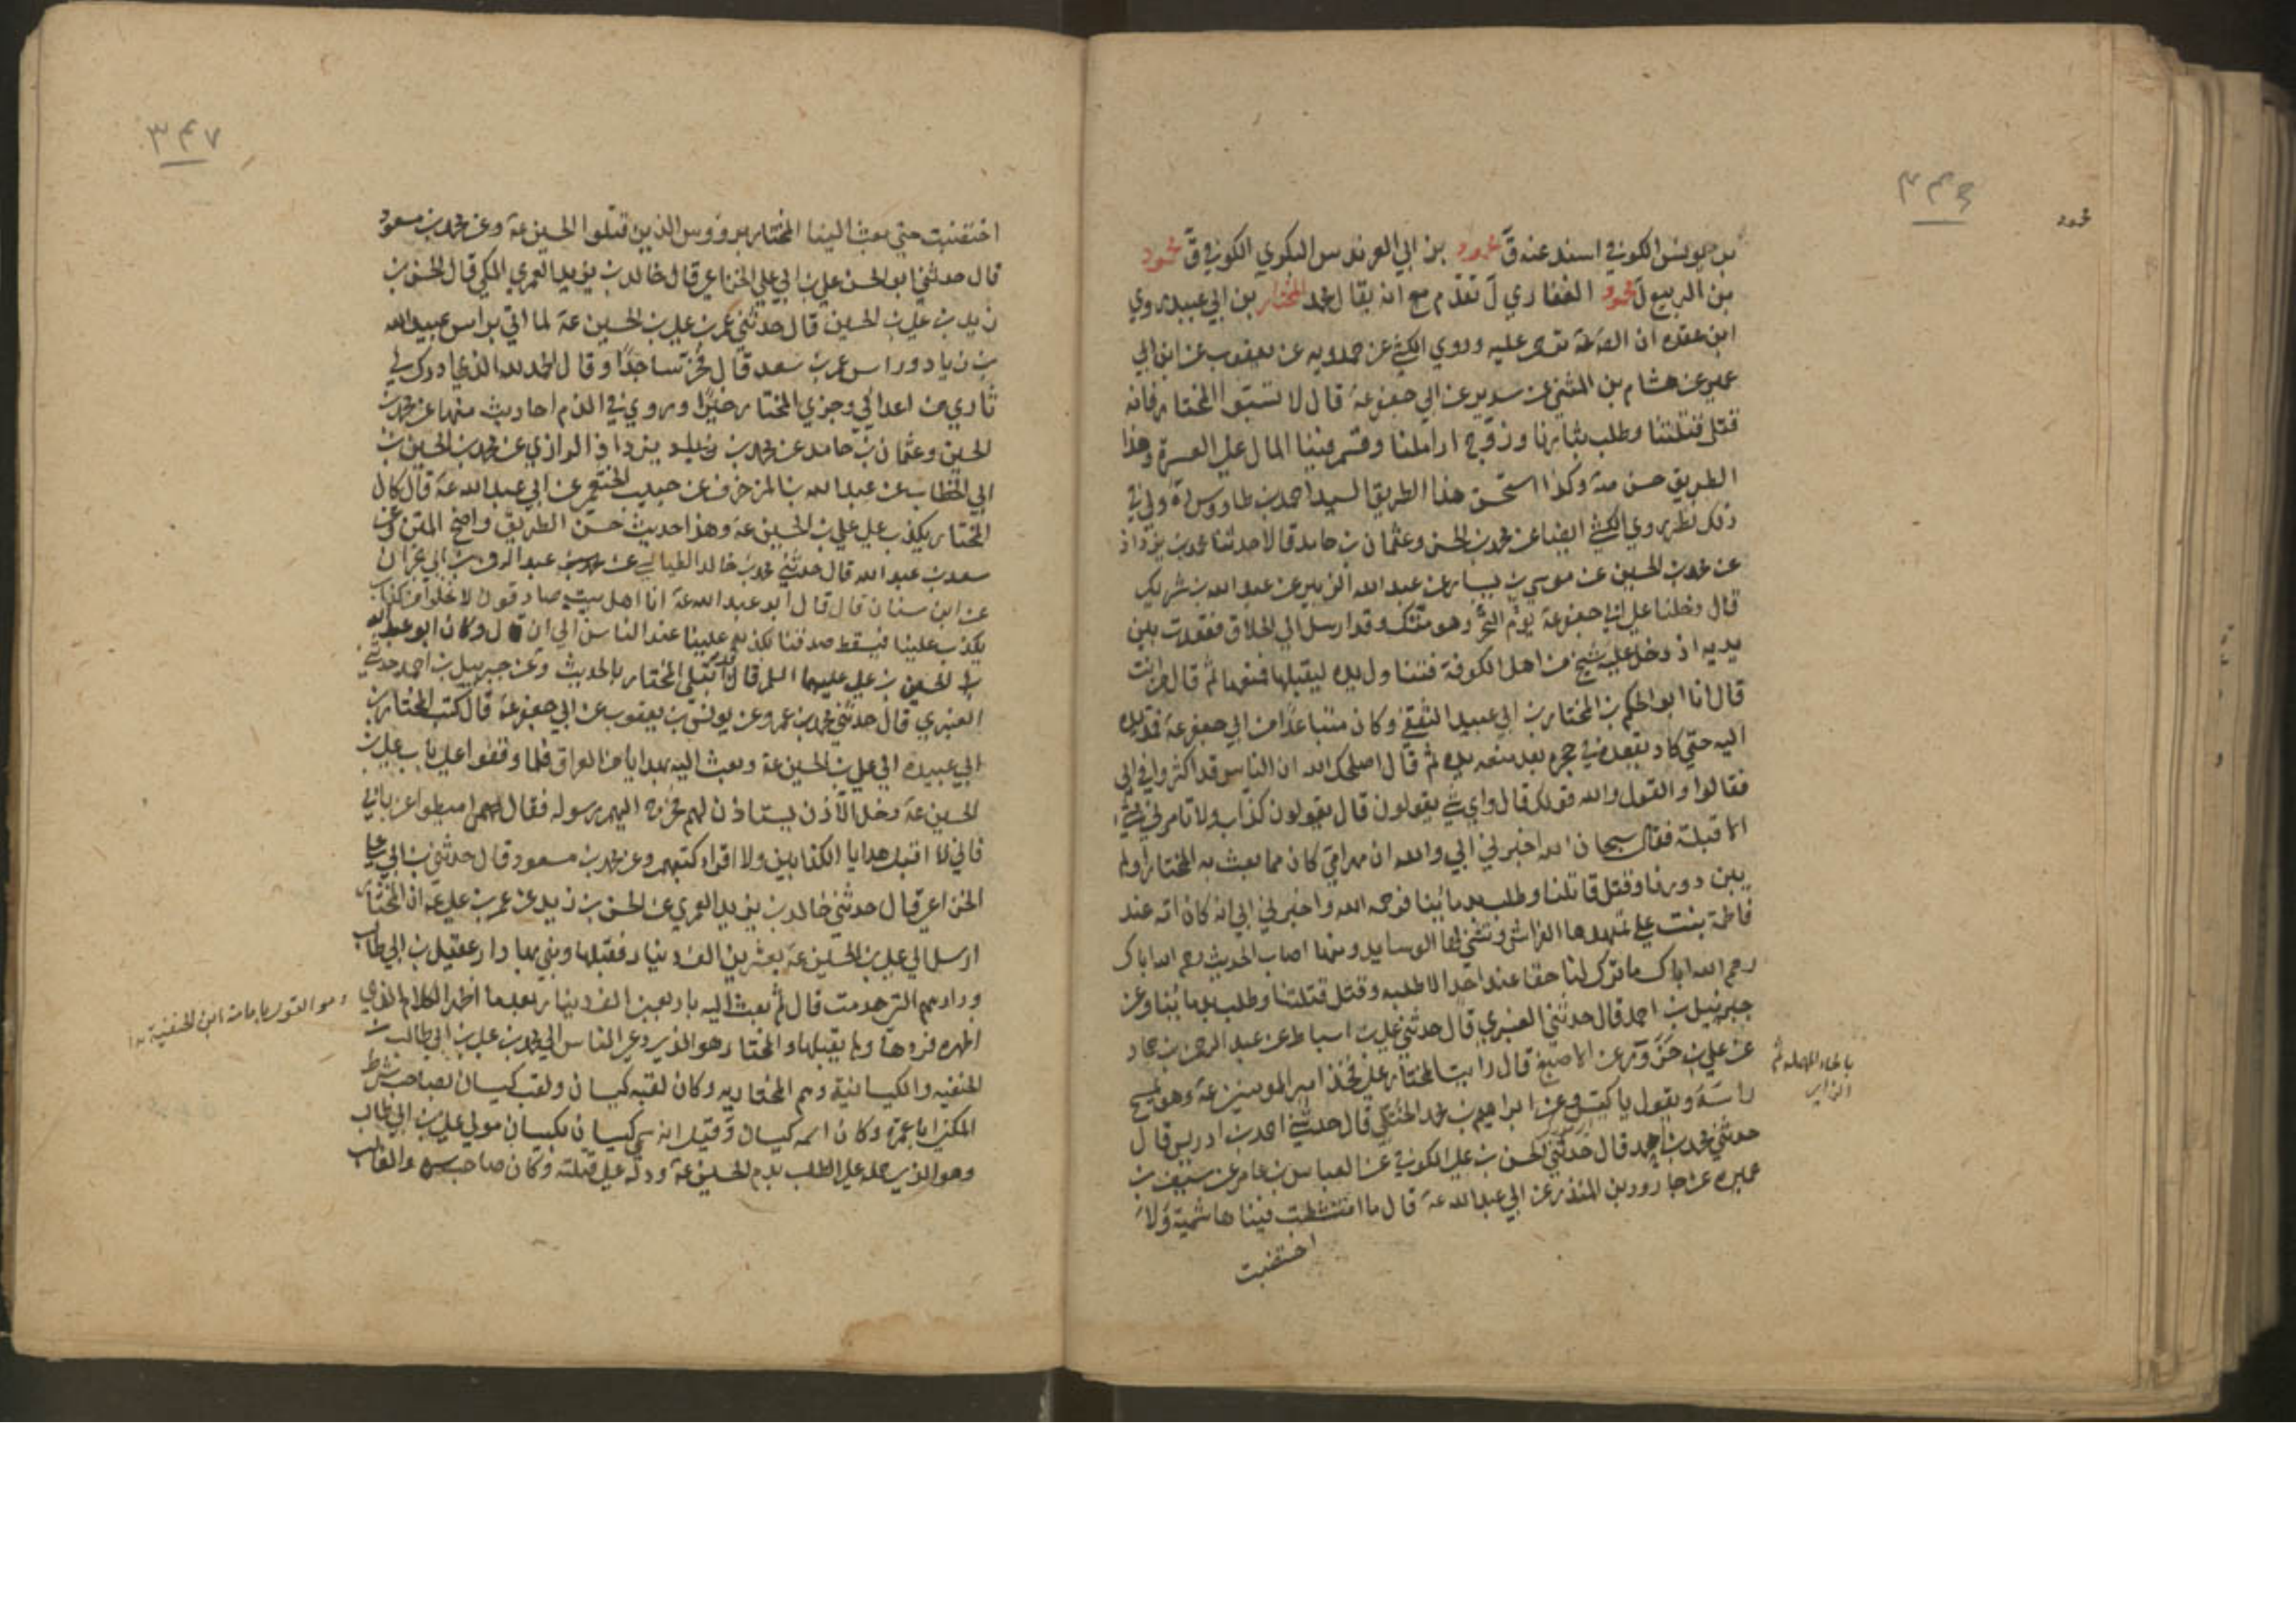 ۳۴۶
محمود
بن جويس الكوفي اسند عنه ق محمود بن ابي العوندس البكري الكوفي ق محمود
بن الربيع ل محمود الغفاري ل تقدم مع انه يقال محمد المختار بن ابي عبيدة روي
ابن عقده ان الصع ترحم عليه وروي الكشي عن حمدويه عن يعقوب عن ابن ابي
عمير عن هشام بن المثنى عن سدير عن ابي جعفر ع قال لا تسبوا المختار فانه
قتل قتلتنا وطلب بثارنا وزوج اراملنا وقسم فينا المال علي العسرة وهذا
الطريق حسن وكذا استحسن هذا الطريق السيد احمد بن طاووس ره ولي في
ذلك نظر روي الكشي ايضا عن محمد بن الحسن وعثمان بن حامد قالا حدثنا محمد بن يزداذ
عن محمد بن الحسين عن موسي بن يسار عن عبد الله الزبير عن عبد الله بن شريك
قال دخلنا علي ابي جعفر ع يوم النحر وهو متك وقد ارسل الي الحلاق فقعدت بين
يديه اذ دخل عليه شيخ من اهل الكوفة فتناول يده ليقبلها فمنعه ثم قال من انت
قال انا ابو الحكم بن المختار بن ابي عبيد الثقفي وكان متباعدا من ابي جعفر ع فمد يده
اليه حتي كاد يقعده في حجره بعد منعه يده ثم قال اصلحك الله ان الناس قد اكثروا في ابي
فقالوا والقول والله قولك قال واي شي يقولون قال يقولون كذاب ولا تامرني بشي
الا قبلته فقال سبحان الله اخبرني ابي والله ان مهر امي كان مما بعث به المختار اولم
يبن دورنا وقتل قاتلنا وطلب بدمائنا فرحمه الله واخبرني ابي انه كان عند
فاطمة بنت علي يمهدها الفراش ويثني لها الوسايد ومنها اصاب الحديث رحم الله اباك
رحم الله اباك ما ترك لنا حقا عند احد الا طلبه وقتل قتلتنا وطلب بدمائنا وعن
جبرئيل بن احمد قال حدثني العنبري قال حدثني علي بن اسباط عن عبد الرحمن بن حماد
عن علي بن حزور عن الاصبغ قال رايت المختار علي فخذ امير المومنين ع وهو يمسح
راسه ويقول يا كيس وعن ابراهيم بن محمد الختلي قال حدثني احمد بن ادريس قال
حدثني محمد بن احمد قال حدثني الحسن بن علي الكوفي عن العباس بن عامر عن سيف بن
عميره عن جارود بن المنذر عن ابي عبد الله ع قال ما امتشطت فينا هاشمية ولا
اختضبت
بالحاء المهملة ثم
الزاي
۳۴۷
اختضبت حتي بعث الينا المختار برووس الذين قتلوا الحسين ع وعن محمد بن مسعود
قال حدثني ابو الحسن علي بن ابي علي الخزاعي قال خالد بن يزيد العمري المكي قال الحسن بن
زيد بن علي بن الحسين قال حدثني عمر بن علي بن الحسين ع لما اتي براس عبيد الله
بن زياد وراس عمر بن سعد قال فخر ساجدا وقال الحمد لله الذي ادرك لي
ثاري من اعدائي وجزي المختار خيرا وروي في الذم احاديث منها عن محمد بن
الحسين وعثمان بن حامد عن محمد بن يزداذ الرازي عن محمد بن الحسين بن
ابي الخطاب عن عبد الله بن المزخرف عن حبيب الخثعمي عن ابي عبد الله ع قال كان
المختار يكذب علي علي بن الحسين ع وهذا حديث حسن الطريق واضح المتن وعن
سعد بن عبد الله قال حدثني محمد بن خالد الطيالسي عن عبد الرحمن بن ابي نجران
عن ابن سنان قال قال ابو عبد الله ع انا اهل بيت صادقون لا نخلوا من كذاب
يكذب علينا فيسقط صدقنا بكذبه علينا عند الناس الي ان قال وكان ابو عبد الله
بن الحسين بن علي عليهما السلم قال قد ابتلي المختار بالحديث وعن جبرييل بن احمد حدثني
العنبري قال حدثني محمد بن عمرو عن يونس بن يعقوب عن ابي جعفر ع قال كتب المختار بن
ابي عبيده الي علي بن الحسين ع وبعث اليه بهدايا من العراق فلما وقفوا علي باب علي بن
الحسين ع دخل الآذن يستاذن لهم فخرج اليهم رسوله فقال اميطوا عن بابي
فاني لا اقبل هدايا الكذابين ولا اقرا كتبهم وعن محمد بن مسعود قال حدثني بن ابي علي
الخزاعي قال حدثني خالد بن يزيد العمري عن الحسن بن زيد عن عمر بن علي ع ان المختار
ارسل الي علي بن الحسين ع بعشرين الف دينار فقبلها وبني بها دار عقيل بن ابي طالب
ودارهم التي هدمت قال ثم بعث اليه باربعين الف دينار بعدما اظهر الكلام الذي
اظهره فردها ولم يقبلها والمختار هو الذي دعي الناس الي محمد بن علي بن ابي طالب بن
الحنفيه والكيسانية وهم المختاريه وكان لقبه كيسان ولقب كيسان لصاحب شرطه
المكني ابا عمرة وكان اسمه كيسان وقيل انه سمي كيسان بكيسان مولي علي بن ابي طالب
وهو الذي حمله علي الطلب بدم الحسين ع ودله علي قتلته وكان صاحب سره والغالب
وهو القول بامامة ابن الحنفية